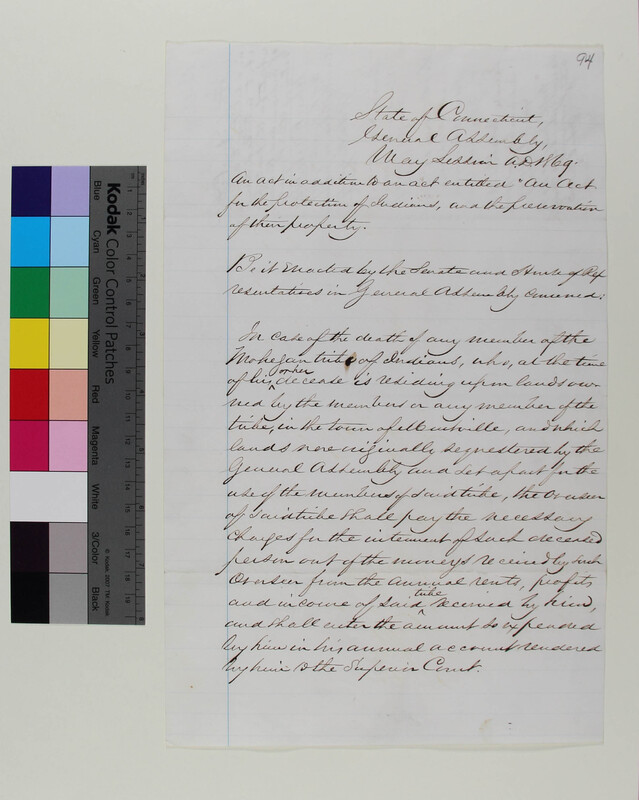 94
State of Connecticut,
General Assembly,
May Session A.D. 1869.
An act in addition to an act entitled "An Act
for the protection of Indians, and the preservation
of their property.
Be it Enacted by the Senate and House of Rep
resentatives in General Assembly convened:
In case of the death of any member of the
Mohegan tribe of Indians, who, at the time
of his or her decease is residing upon lands ow
ned by the members or any member of the
tribe, in the town of Montville, and which
lands were originally sequestered by the
General Assembly and set apart for the
use of the members of said tribe, the Overseer
of said tribe shall pay the necessary
charges for the interment of such deceased
person out of the moneys received by such
Overseer from the annual rents, profits
and income of said tribe received by him,
and shall enter the amount so expended
by him in his annual account rendered
by him to the Superior Court.
Kodak Color Control Patches
Blue
Cyan
Green
Yellow
Red
Magenta
White
3/Color
Black
© Kodak, 2007 TM: Kodak